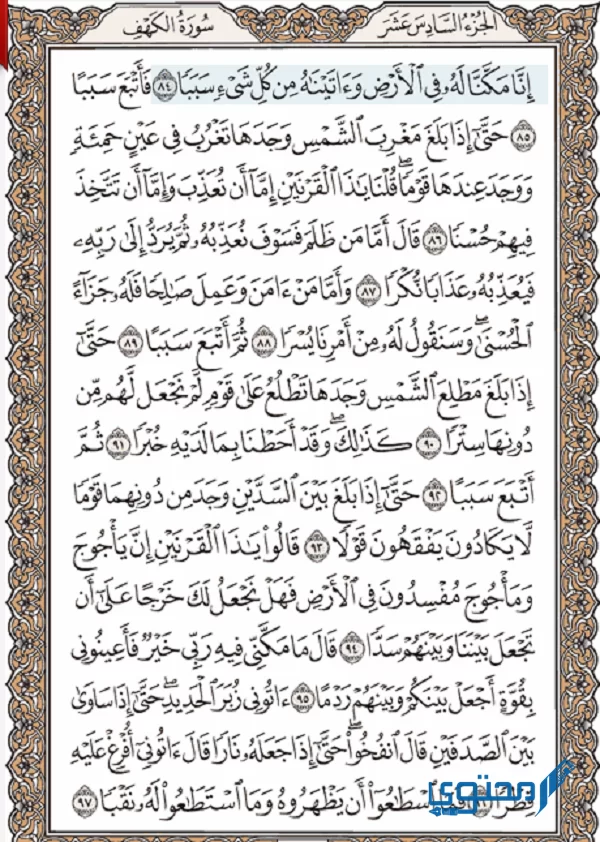 الجزء السادس عشر
سورة الكهف
إِنَّا مَكَّنَّا لَهُۥ فِى ٱلْأَرْضِ وَءَاتَيْنَٰهُ مِن كُلِّ شَىْءٍ سَبَبًا ٨٤ فَأَتْبَعَ سَبَبًا
٨٥ حَتَّىٰٓ إِذَا بَلَغَ مَغْرِبَ ٱلشَّمْسِ وَجَدَهَا تَغْرُبُ فِى عَيْنٍ حَمِئَةٍ
وَوَجَدَ عِندَهَا قَوْمًا ۗ قُلْنَا يَٰذَا ٱلْقَرْنَيْنِ إِمَّآ أَن تُعَذِّبَ وَإِمَّآ أَن تَتَّخِذَ
فِيهِمْ حُسْنًا ٨٦ قَالَ أَمَّا مَن ظَلَمَ فَسَوْفَ نُعَذِّبُهُۥ ثُمَّ يُرَدُّ إِلَىٰ رَبِّهِۦ
فَيُعَذِّبُهُۥ عَذَابًا نُّكْرًا ٨٧ وَأَمَّا مَنْ ءَامَنَ وَعَمِلَ صَٰلِحًا فَلَهُۥ جَزَآءً
ٱلْحُسْنَىٰ ۖ وَسَنَقُولُ لَهُۥ مِنْ أَمْرِنَا يُسْرًا ٨٨ ثُمَّ أَتْبَعَ سَبَبًا ٨٩ حَتَّىٰٓ
إِذَا بَلَغَ مَطْلِعَ ٱلشَّمْسِ وَجَدَهَا تَطْلُعُ عَلَىٰ قَوْمٍ لَّمْ نَجْعَل لَّهُم مِّن
دُونِهَا سِتْرًا ٩٠ كَذَٰلِكَ ۖ وَقَدْ أَحَطْنَا بِمَا لَدَيْهِ خُبْرًا ٩١ ثُمَّ
أَتْبَعَ سَبَبًا ٩٢ حَتَّىٰٓ إِذَا بَلَغَ بَيْنَ ٱلسَّدَّيْنِ وَجَدَ مِن دُونِهِمَا قَوْمًا
لَّا يَكَادُونَ يَفْقَهُونَ قَوْلًا ٩٣ قَالُوا۟ يَٰذَا ٱلْقَرْنَيْنِ إِنَّ يَأْجُوجَ
وَمَأْجُوجَ مُفْسِدُونَ فِى ٱلْأَرْضِ فَهَلْ نَجْعَلُ لَكَ خَرْجًا عَلَىٰٓ أَن
تَجْعَلَ بَيْنَنَا وَبَيْنَهُمْ سَدًّا ٩٤ قَالَ مَا مَكَّنِّى فِيهِ رَبِّى خَيْرٌ فَأَعِينُونِى
بِقُوَّةٍ أَجْعَلْ بَيْنَكُمْ وَبَيْنَهُمْ رَدْمًا ٩٥ ءَاتُونِى زُبَرَ ٱلْحَدِيدِ ۖ حَتَّىٰٓ إِذَا سَاوَىٰ
بَيْنَ ٱلصَّدَفَيْنِ قَالَ ٱنفُخُوا۟ ۖ حَتَّىٰٓ إِذَا جَعَلَهُۥ نَارًا قَالَ ءَاتُونِىٓ أُفْرِغْ عَلَيْهِ
قِطْرًا فَمَا ٱسْطَٰعُوٓا۟ أَن يَظْهَرُوهُ وَمَا ٱسْتَطَٰعُوا۟ لَهُۥ نَقْبًا ٩٧
محتوى